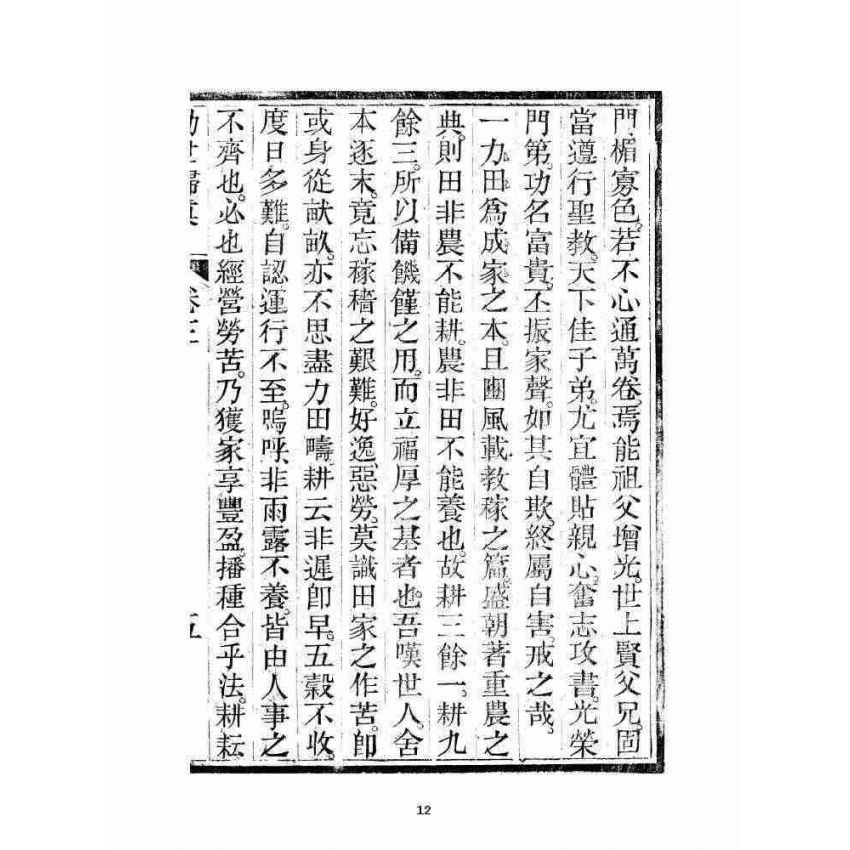 門楣寡色。若不心通萬卷。焉能祖父增光。世上賢父兄。固
當遵行聖教。天下佳子弟。尤宜體貼親心。奮志攻書。光榮
門第。功名富貴。丕振家聲。如其自欺。終屬自害。戒之哉。
一力田爲成家之本。且豳風載教稼之篇。盛朝著重農之
典。則田非農不能耕。農非田不能養也。故耕三餘一。耕九
餘三。所以備饑饉之用。而立福厚之基者也。吾嘆世人。舍
本逐末。竟忘稼穡之艱難。好逸惡勞。莫識田家之作苦。卽
或身從畎畝。亦不思盡力田疇。耕云非遲卽早。五穀不收。
度日多難。自認運行不至。嗚呼。非雨露不養。皆由人事之
不齊也。必也經營勞苦。乃獲家享豐盈。播種合乎法。耕耘
卷三 五
12